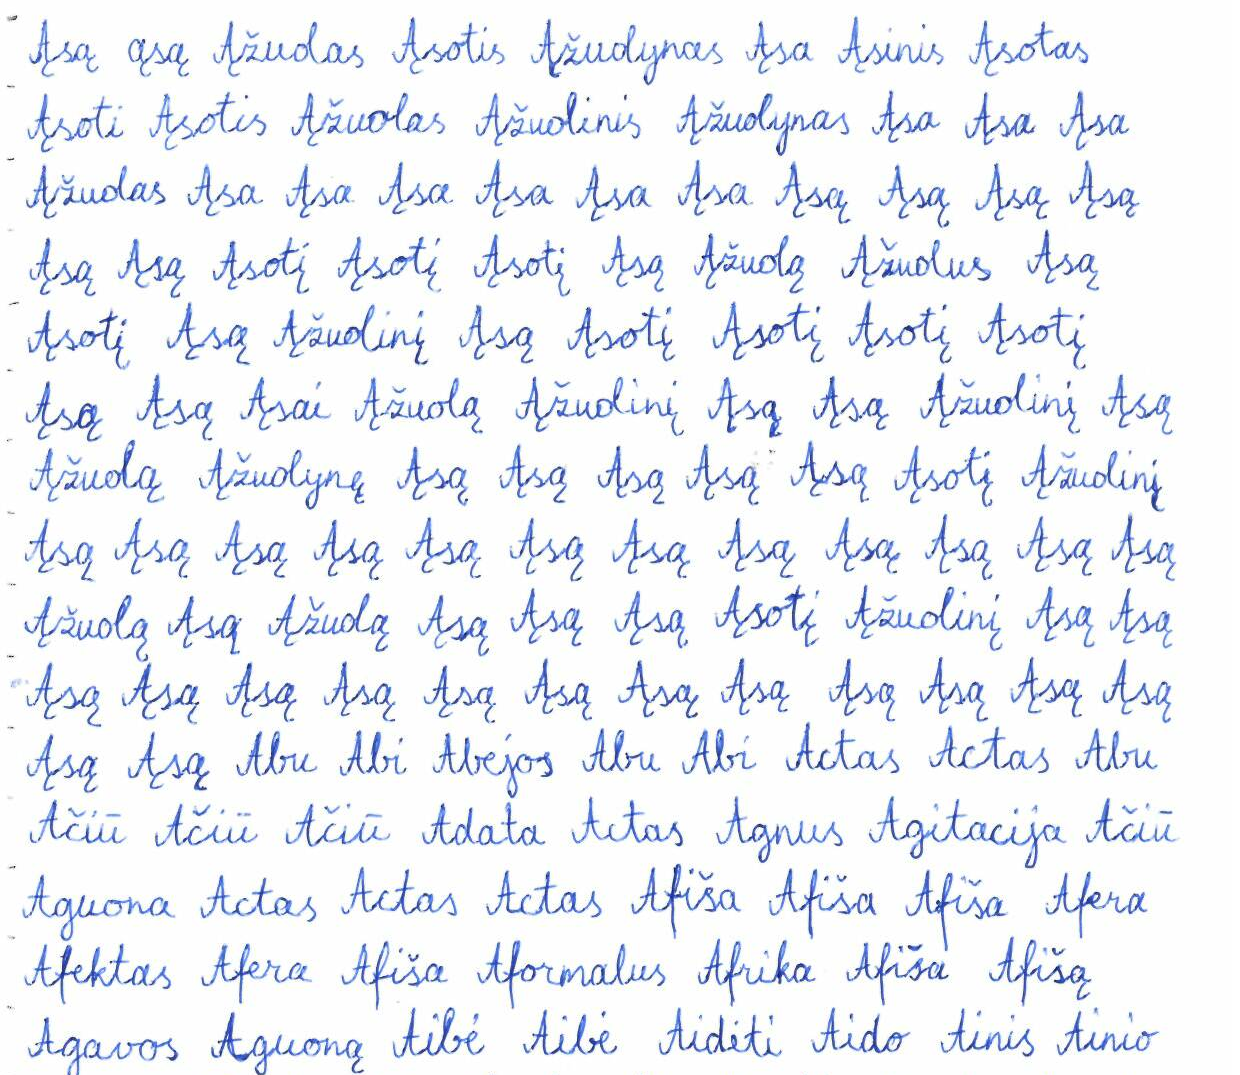 Ąsą ąsą Ąžuolas Ąsotis Ąžuolynas Ąsa Ąsinis Ąsotas
Ąsoti Ąsotis Ąžuolas Ąžuolinis Ąžuolynas Ąsa Ąsa Ąsa
Ąžuolas Ąsa Ąsa Ąsa Ąsa Ąsa Ąsa Ąsą Ąsą Ąsą Ąsą
Ąsą Ąsą Ąsotį Ąsotį Ąsotį Ąsą Ąžuolą Ąžuolus Ąsą
Ąsotį Ąsą Ąžuolinį Ąsą Ąsotį Ąsotį Ąsotį Ąsotį
Ąsą Ąsą Ąsai Ąžuolą Ąžuolinį Ąsą Ąsą Ąžuolinį Ąsą
Ąžuolą Ąžuolynę Ąsą Ąsą Ąsą Ąsą Ąsą Ąsotį Ąžuolinį
Ąsą Ąsą Ąsą Ąsą Ąsą Ąsą Ąsą Ąsą Ąsą Ąsą Ąsą Ąsą
Ąžuolą Ąsą Ąžuolą Ąsą Ąsą Ąsą Ąsotį Ąžuolinį Ąsą Ąsą
Ąsą Ąsą Ąsą Ąsą Ąsą Ąsą Ąsą Ąsą Ąsą Ąsą Ąsą Ąsą
Ąsą Ąsą Abu Abi Abejos Abu Abi Actas Actas Abu
Ačiū Ačiū Ačiū Adata Actas Agnus Agitacija Ačiū
Aguona Actas Actas Actas Afiša Afiša Afiša Afera
Afektas Afera Afiša Aformalus Afrika Afiša Afišą
Agavos Aguoną Aibė Aibė Aidėti Aido Ainis Ainio